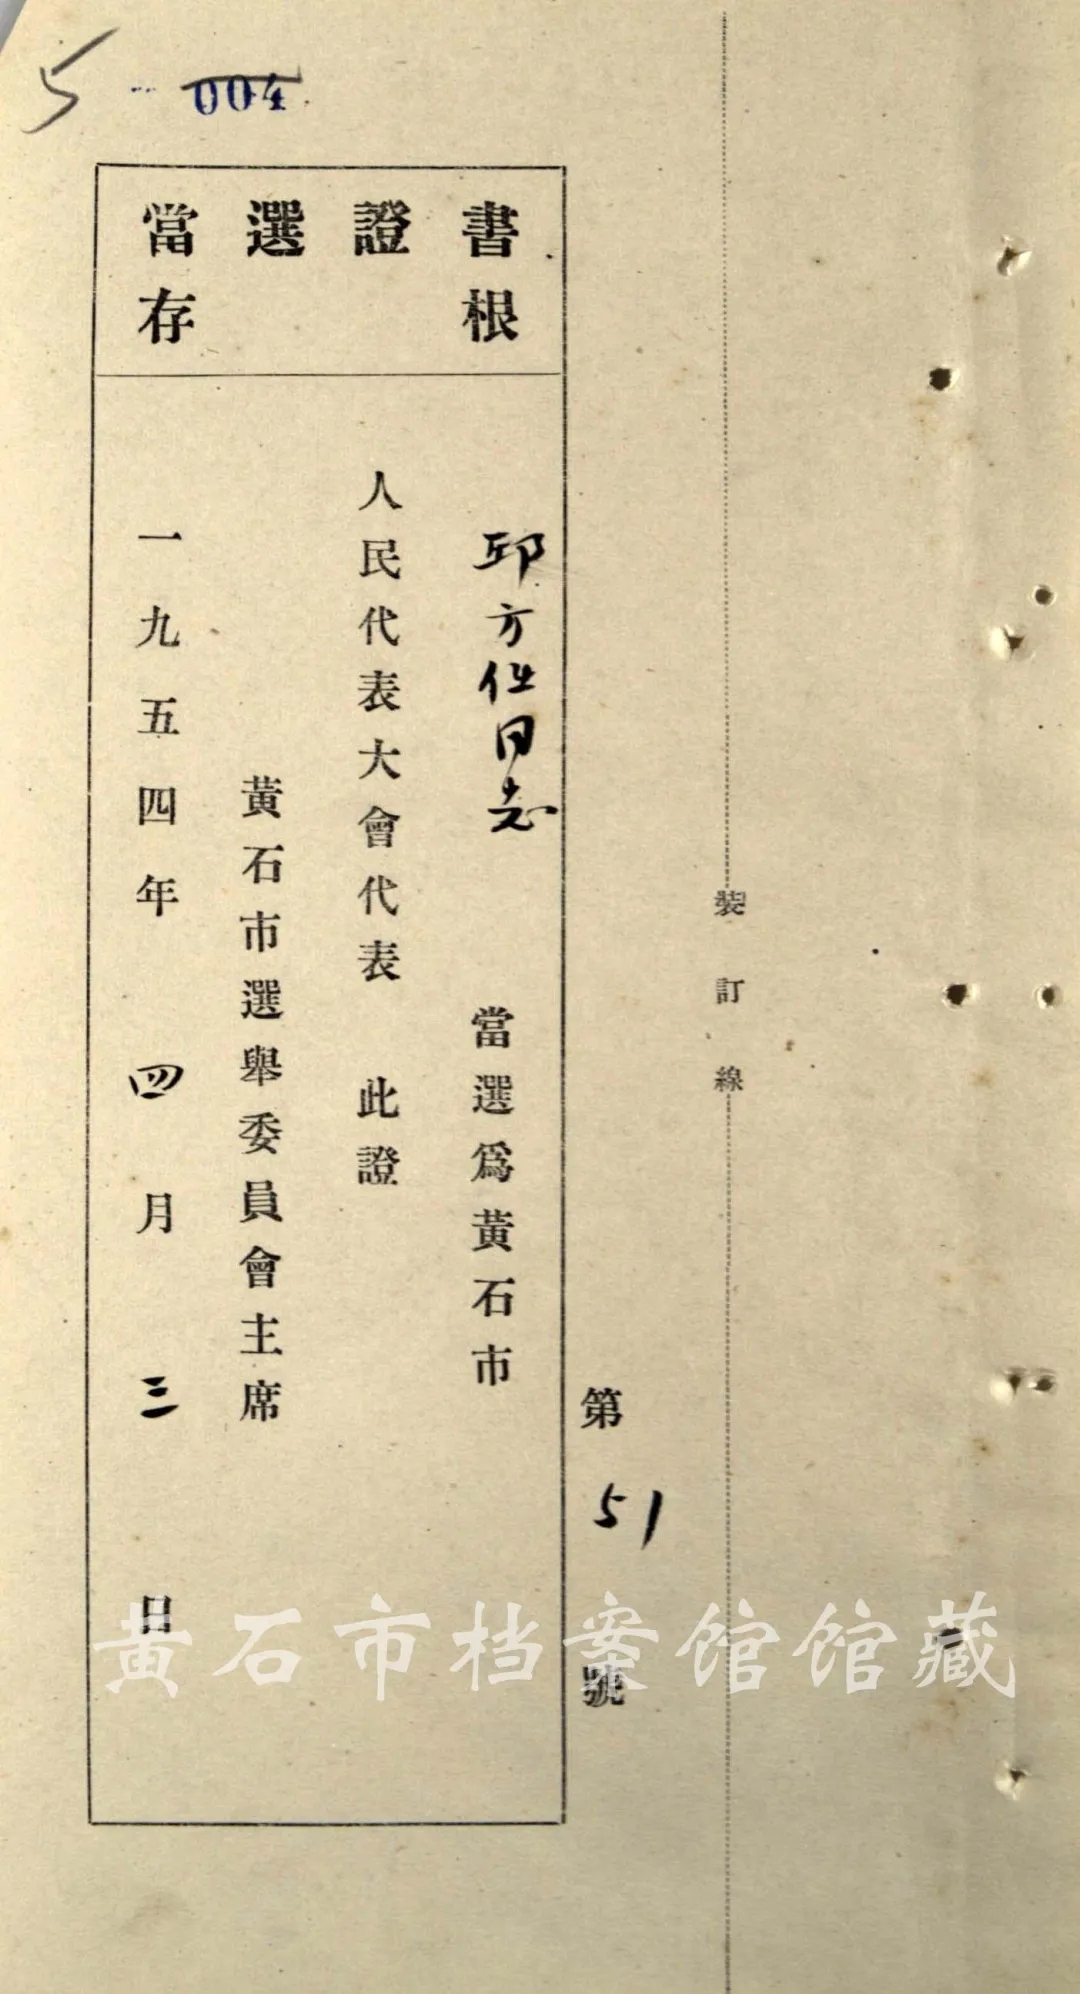 5
004
當選證書
存根
邱方任同志 當選為黃石市
人民代表大會代表 此證
黃石市選舉委員會主席
一九五四年 四月 三 日
第 51 號
裝訂線
黄石市档案馆馆藏